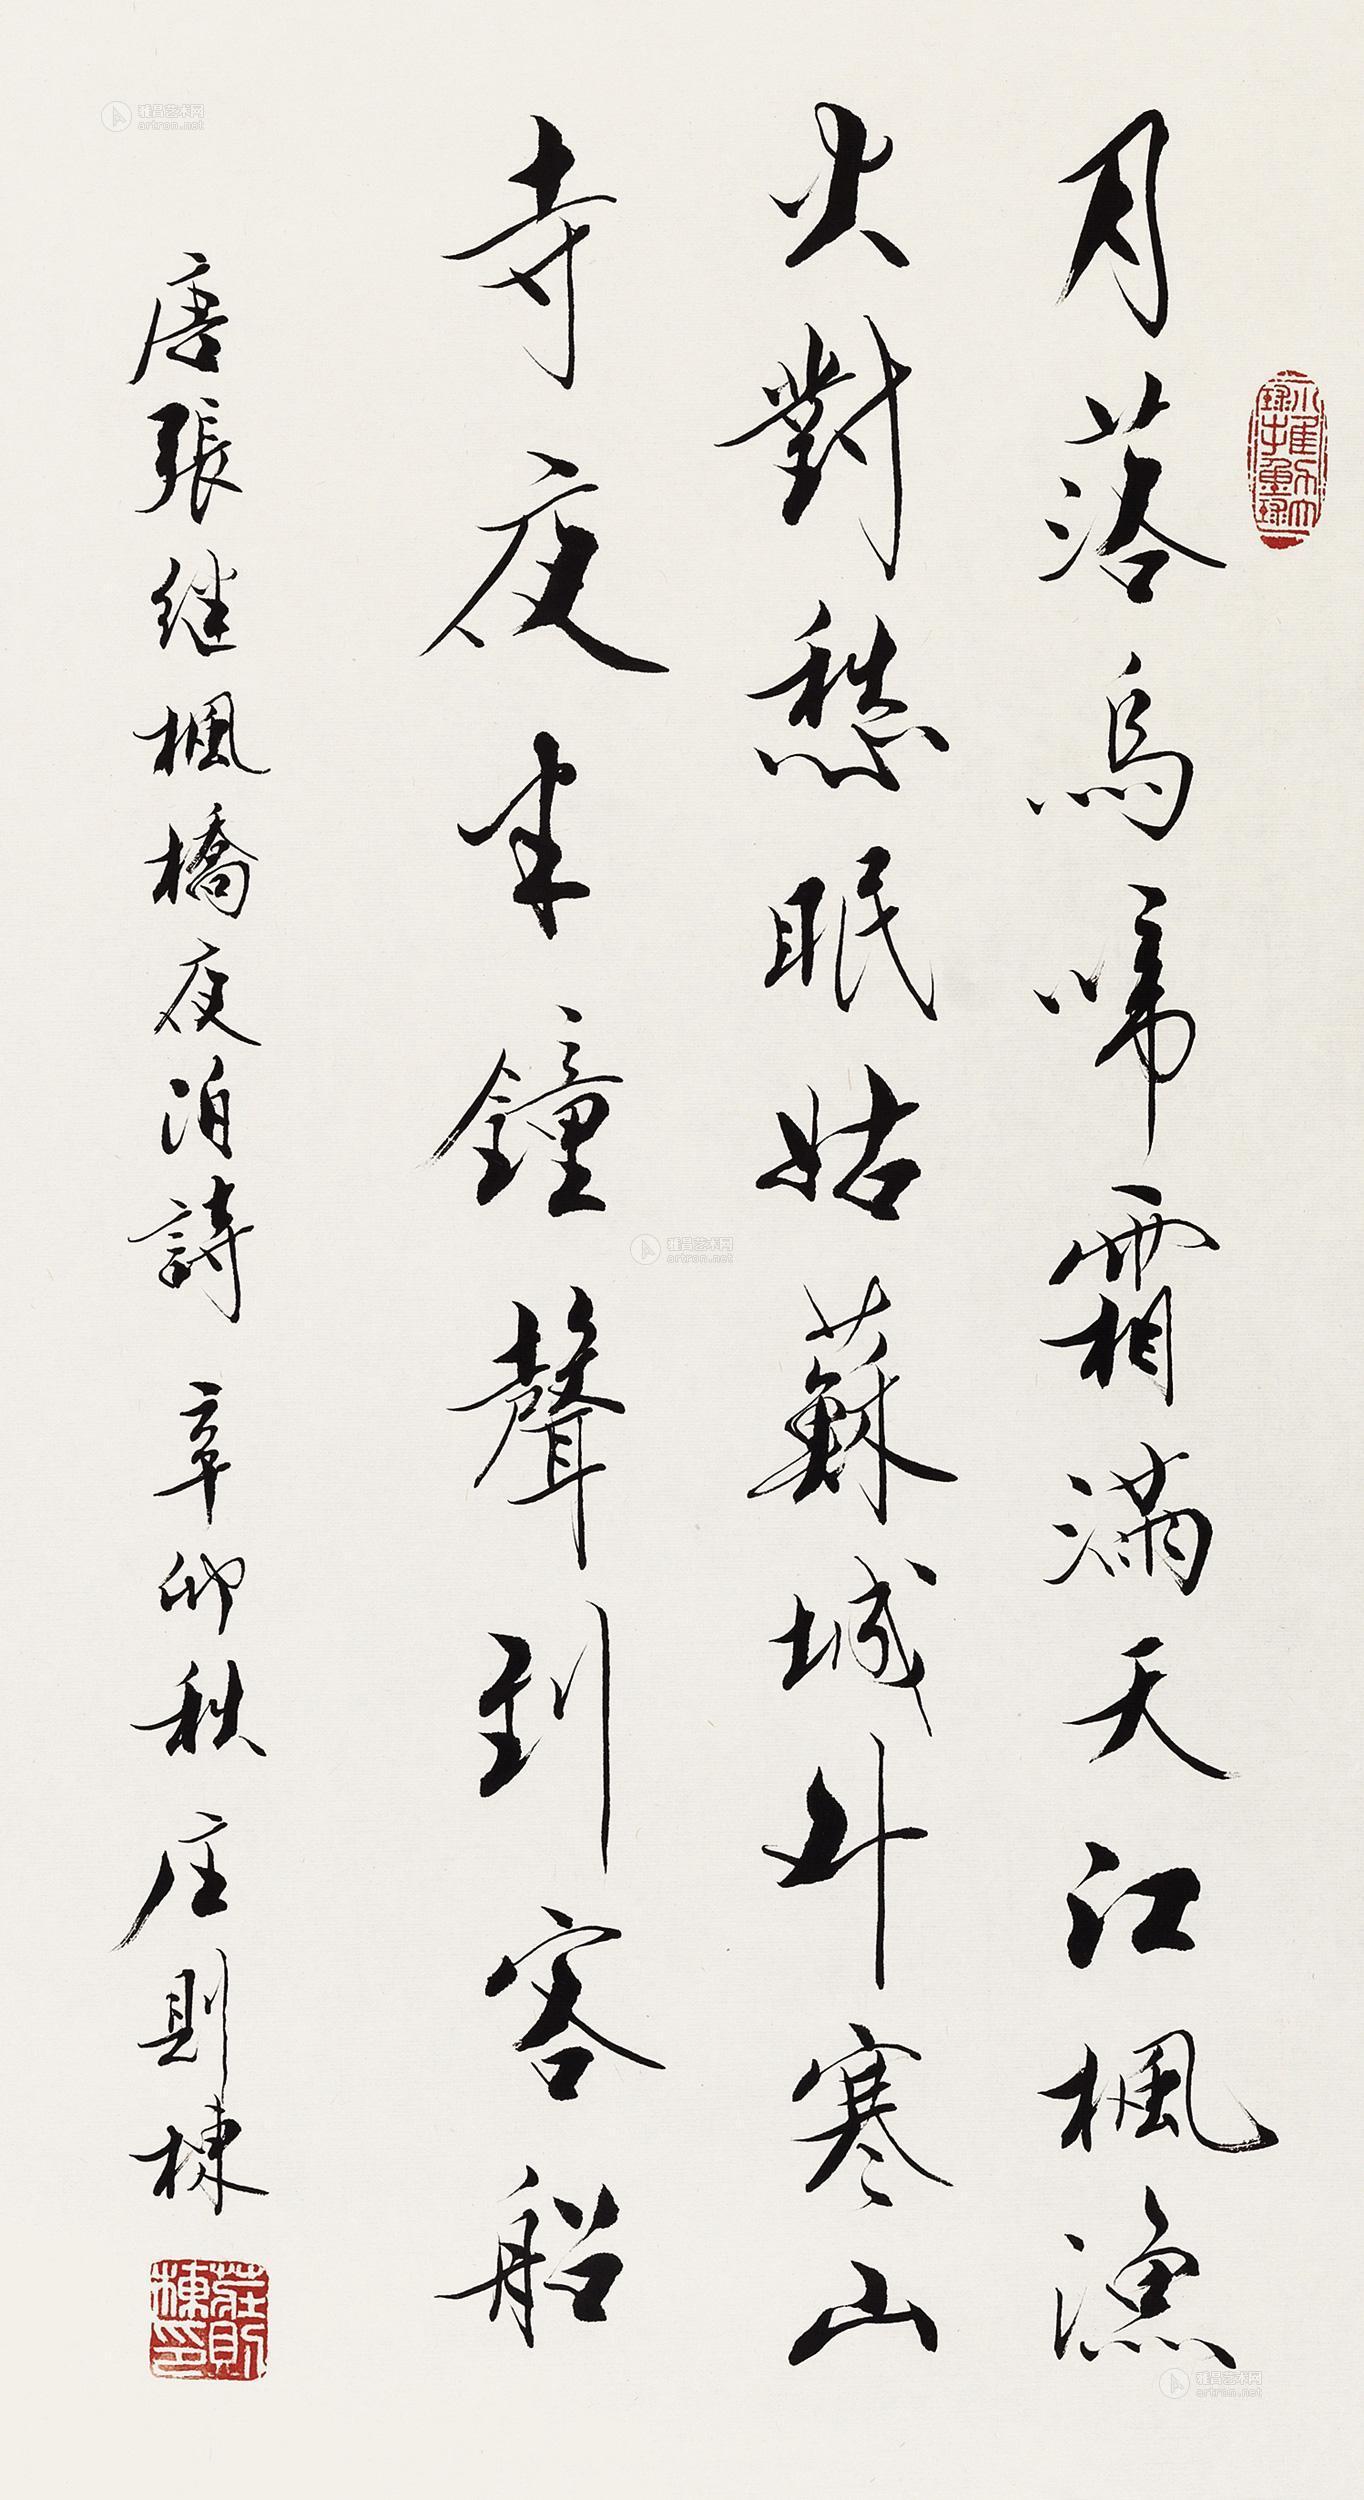 月落烏啼霜滿天江楓漁
火對愁眠姑蘇城外寒山
寺夜半鐘聲到客船
唐張继楓橋夜泊詩 辛卯秋 庄則棟
莊則棟印
雅昌艺术网
artron.net
雅昌艺术网
artron.net
雅昌艺术网
artron.net